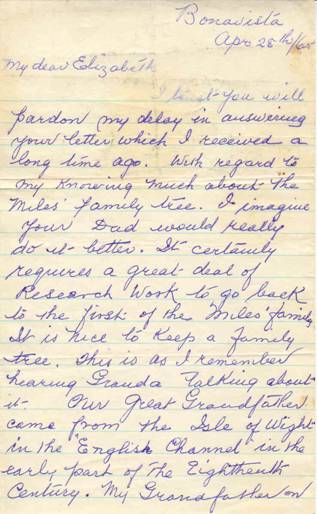 Bonavista
Apr 28th/65
My dear Elizabeth
I trust you will
pardon my delay in answering
your letter which I received a
long time ago. With regard to
my knowing much about the
Miles' family tree. I imagine
your Dad would really
do it better. It certainly
requires a great deal of
Research Work to go back
to the first of the Miles' family
It is nice to keep a family
tree. This is as I remember
hearing Granda talking about
it. Our Great Grandfather
came from the Isle of Wight
in the English Channel in the
early part of the Eighteenth
Century. My Grandfather on